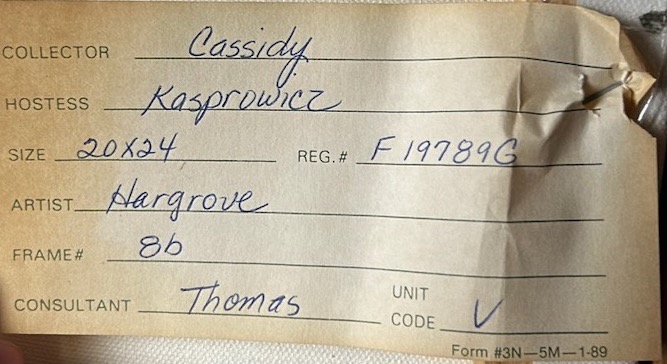 COLLECTOR Cassidy
HOSTESS Kasprowicz
SIZE 20X24 REG.# F19789G
ARTIST Hargrove
FRAME# 8b
CONSULTANT Thomas UNIT CODE V
Form #3N-5M-1-89